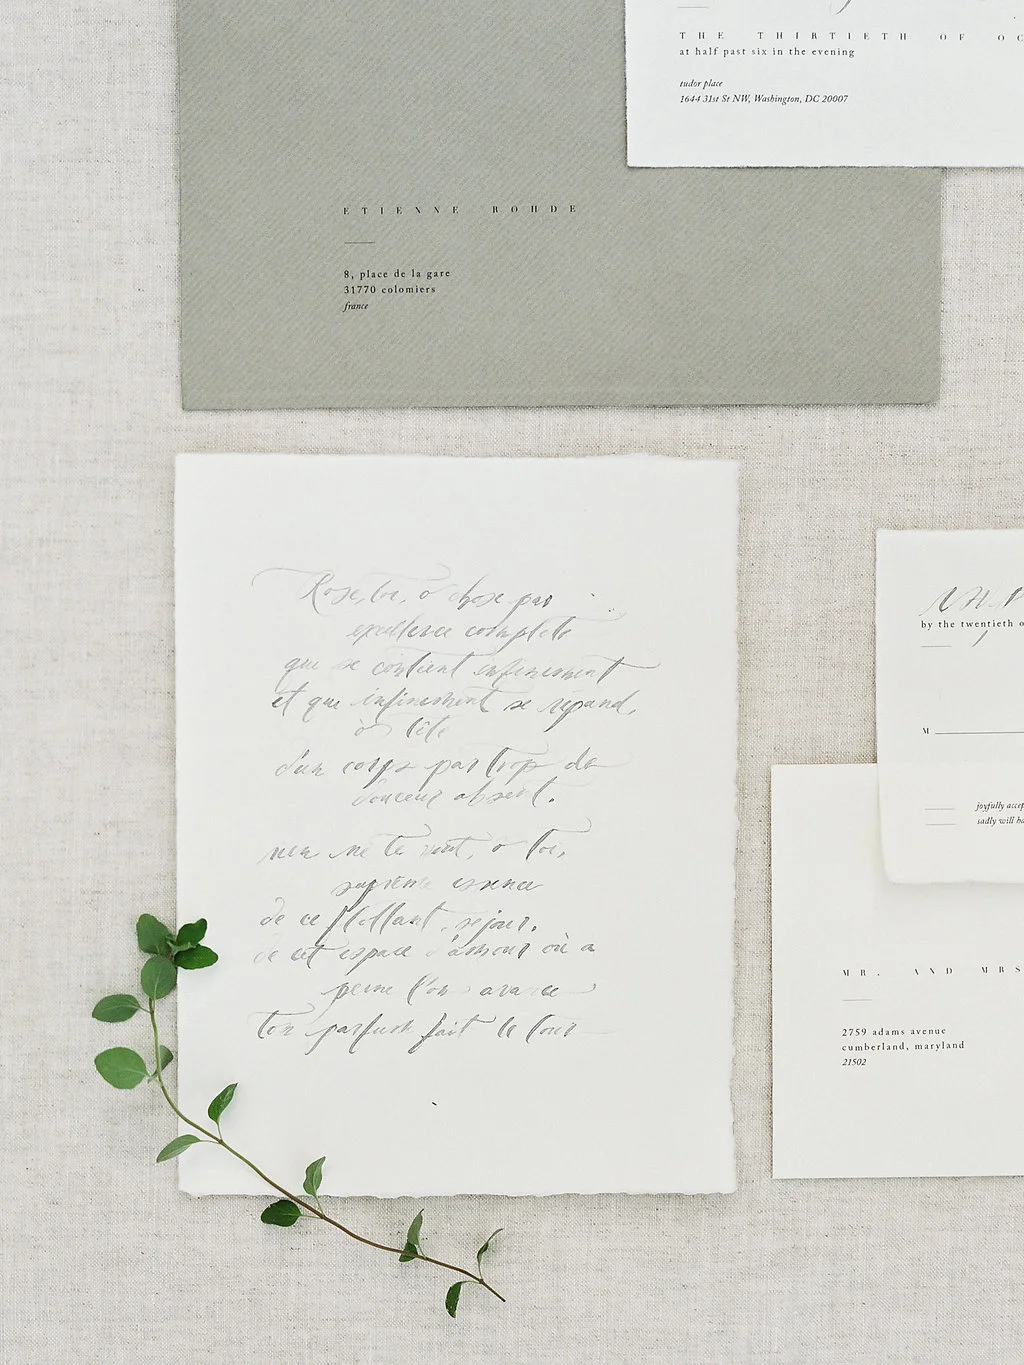 THE THIRTIETH OF OC
at half past six in the evening
tudor place
1644 31st St NW, Washington, DC 20007
ETIENNE ROHDE
8, place de la gare
31770 colomiers
france
Rose, toi, ô chose par
excellence complète
qui se contient infiniment
et que infiniment se répand,
ô tête
d'un corps par trop de
douceur absent.
rien ne te vaut, ô toi,
suprême essence
de ce flottant séjour,
de cet espace d'amour où à
peine l'on avance
ton parfum fait le tour
by the twentieth o
M
joyfully accep
sadly will ha
MR. AND MRS
2759 adams avenue
cumberland, maryland
21502